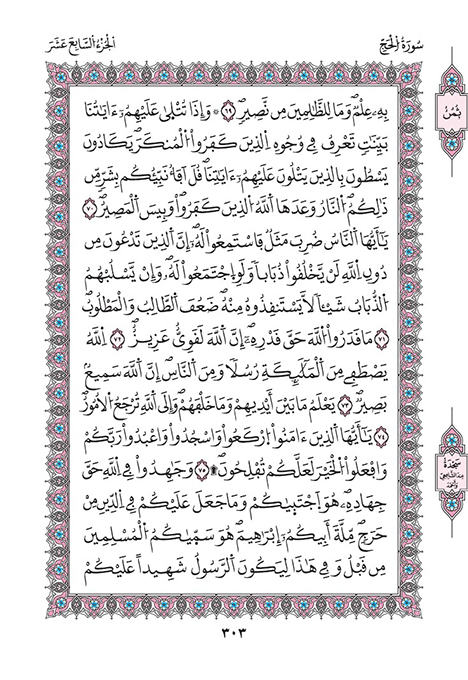 سُورَةُ الْحَجِّ
الْجُزْءُ السَّابِعَ عَشَرَ
ثُمُنْ
بِهِۦ عِلْمٞۖ وَمَا لِلظَّٰلِمِينَ مِن نَّصِيرٖۖ ٦٩ وَإِذَا تُتْلَىٰ عَلَيْهِمُۥٓ ءَايَٰتُنَا
بَيِّنَٰتٖ تَعْرِفُ فِے وُجُوهِ اِ۬لذِينَ كَفَرُواْ اُ۬لْمُنكَرَۖ يَكَادُونَ
يَسْطُونَ بِالذِينَ يَتْلُونَ عَلَيْهِمُۥٓ ءَايَٰتِنَاۖ قُلَ اَفَأُنَبِّئُكُم بِشَرّٖ مِّن
ذَٰلِكُمُۖ اُ۬لنَّارُ وَعَدَهَا اَ۬للَّهُ اُ۬لذِينَ كَفَرُواْۖ وَبِيسَ اَ۬لْمَصِيرُۖ ٧٠
يَٰٓأَيُّهَا اَ۬لنَّاسُ ضُرِبَ مَثَلٞ فَاسْتَمِعُواْ لَهُۥٓۖ إِنَّ اَ۬لذِينَ تَدْعُونَ مِن
دُونِ اِ۬للَّهِ لَنْ يَّخْلُقُواْ ذُبَاباٗ وَلَوِ اِ۪جْتَمَعُواْ لَهُۥۖ وَإِنْ يَّسْلُبْهُمُ
اُ۬لذُّبَابُ شَيْـٔاٗ لَّا يَسْتَنقِذُوهُ مِنْهُۖ ضَعُفَ اَ۬لطَّالِبُ وَالْمَطْلُوبُۖ
٧١ مَا قَدَرُواْ اُ۬للَّهَ حَقَّ قَدْرِهِۦٓۖ إِنَّ اَ۬للَّهَ لَقَوِيٌّ عَزِيزٌۖ ٧٢ اِ۬للَّهُ
يَصْطَفِے مِنَ اَ۬لْمَلَٰٓئِكَةِ رُسُلاٗ وَمِنَ اَ۬لنَّاسِۖ إِنَّ اَ۬للَّهَ سَمِيعُۢ
بَصِيرٞۖ ٧٣ يَعْلَمُ مَا بَيْنَ أَيْدِيهِمْ وَمَا خَلْفَهُمْۖ وَإِلَى اَ۬للَّهِ تُرْجَعُ اُ۬لُامُورُۖ
٧٤ يَٰٓأَيُّهَا اَ۬لذِينَ ءَامَنُواْ اُ۪رْكَعُواْ وَاسْجُدُواْ وَاعْبُدُواْ رَبَّكُمْ
وَافْعَلُواْ اُ۬لْخَيْرَ لَعَلَّكُمْ تُفْلِحُونَۖ ٧٥ وَجَٰهِدُواْ فِے اِ۬للَّهِ حَقَّ
جِهَادِهِۦۖ هُوَ اَ۪جْتَبَىٰكُمْ وَمَا جَعَلَ عَلَيْكُمْ فِے اِ۬لدِّينِ مِنْ
حَرَجٖۖ مِّلَّةَ أَبِيكُمُۥٓ إِبْرَٰهِيمَۖ هُوَ سَمَّىٰكُمُ اُ۬لْمُسْلِمِينَ
مِن قَبْلُ وَفِے هَٰذَا لِيَكُونَ اَ۬لرَّسُولُ شَهِيداً عَلَيْكُمْ
سَجْدَةٌ
عند الشافعي
وأحمد
٣٠٣